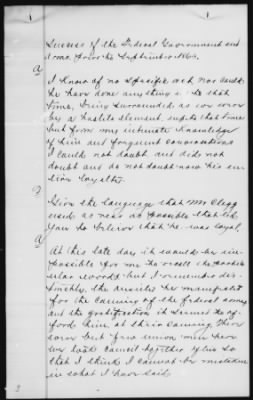 success of the Federal Government and
done prior to September 1864.
A
I know of no specific act nor could
he have done anything in that
time, being surrounded as we were
by a hostile element, up to that time
but from my intimate knowledge
of him and frequent conversations
I could not doubt and did not
doubt and do not doubt now his en
tire loyalty.
Q
Give the language that Mr Clegg
used as near as possible that led
you to believe that he was loyal.
A
At this late day it would be im-
possible for me to recall the partic
ular words but I remember dis-
tinctly, the desires he manifested
for the coming of the federal army
and the gratification it seemed to af-
ford him, at their coming. There
were but few union men here
we took council together
that I think I cannot be mistaken
in what I have said.
3